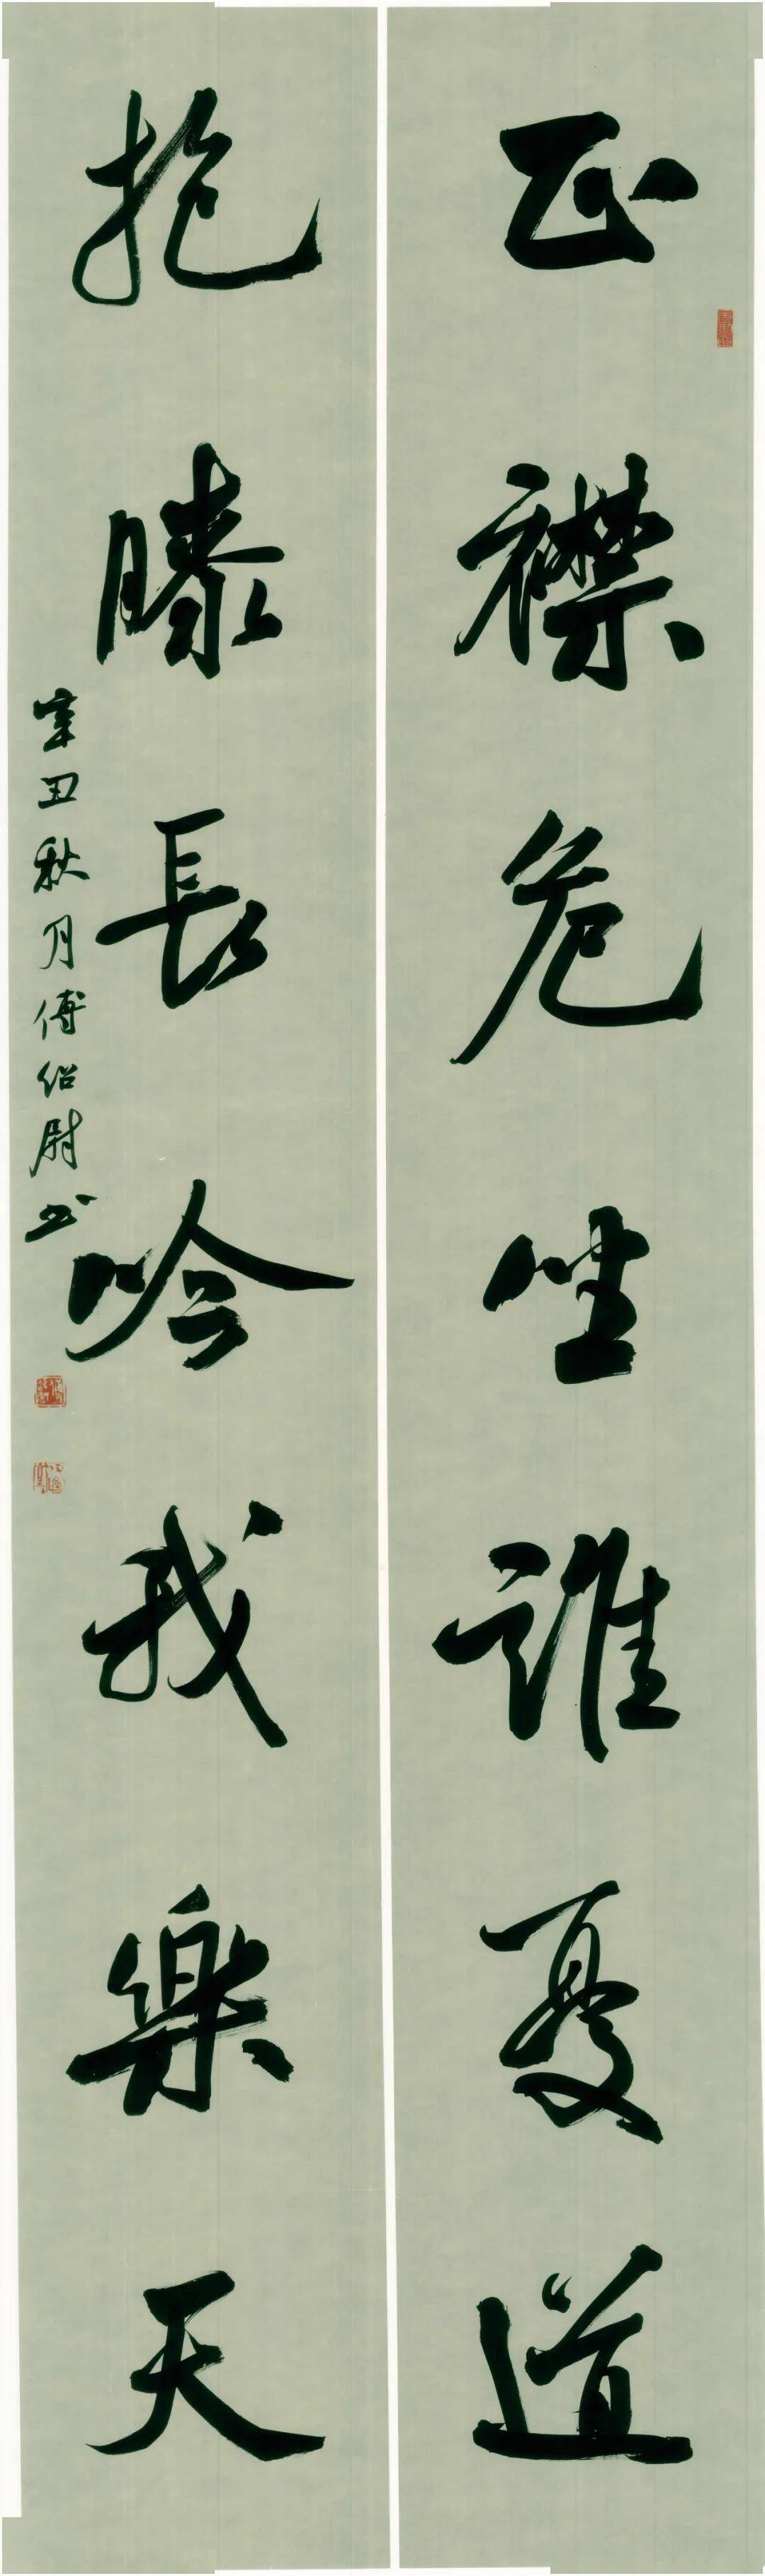 正襟危坐誰憂道
抱膝長吟我樂天
辛丑秋月傅紹尉书